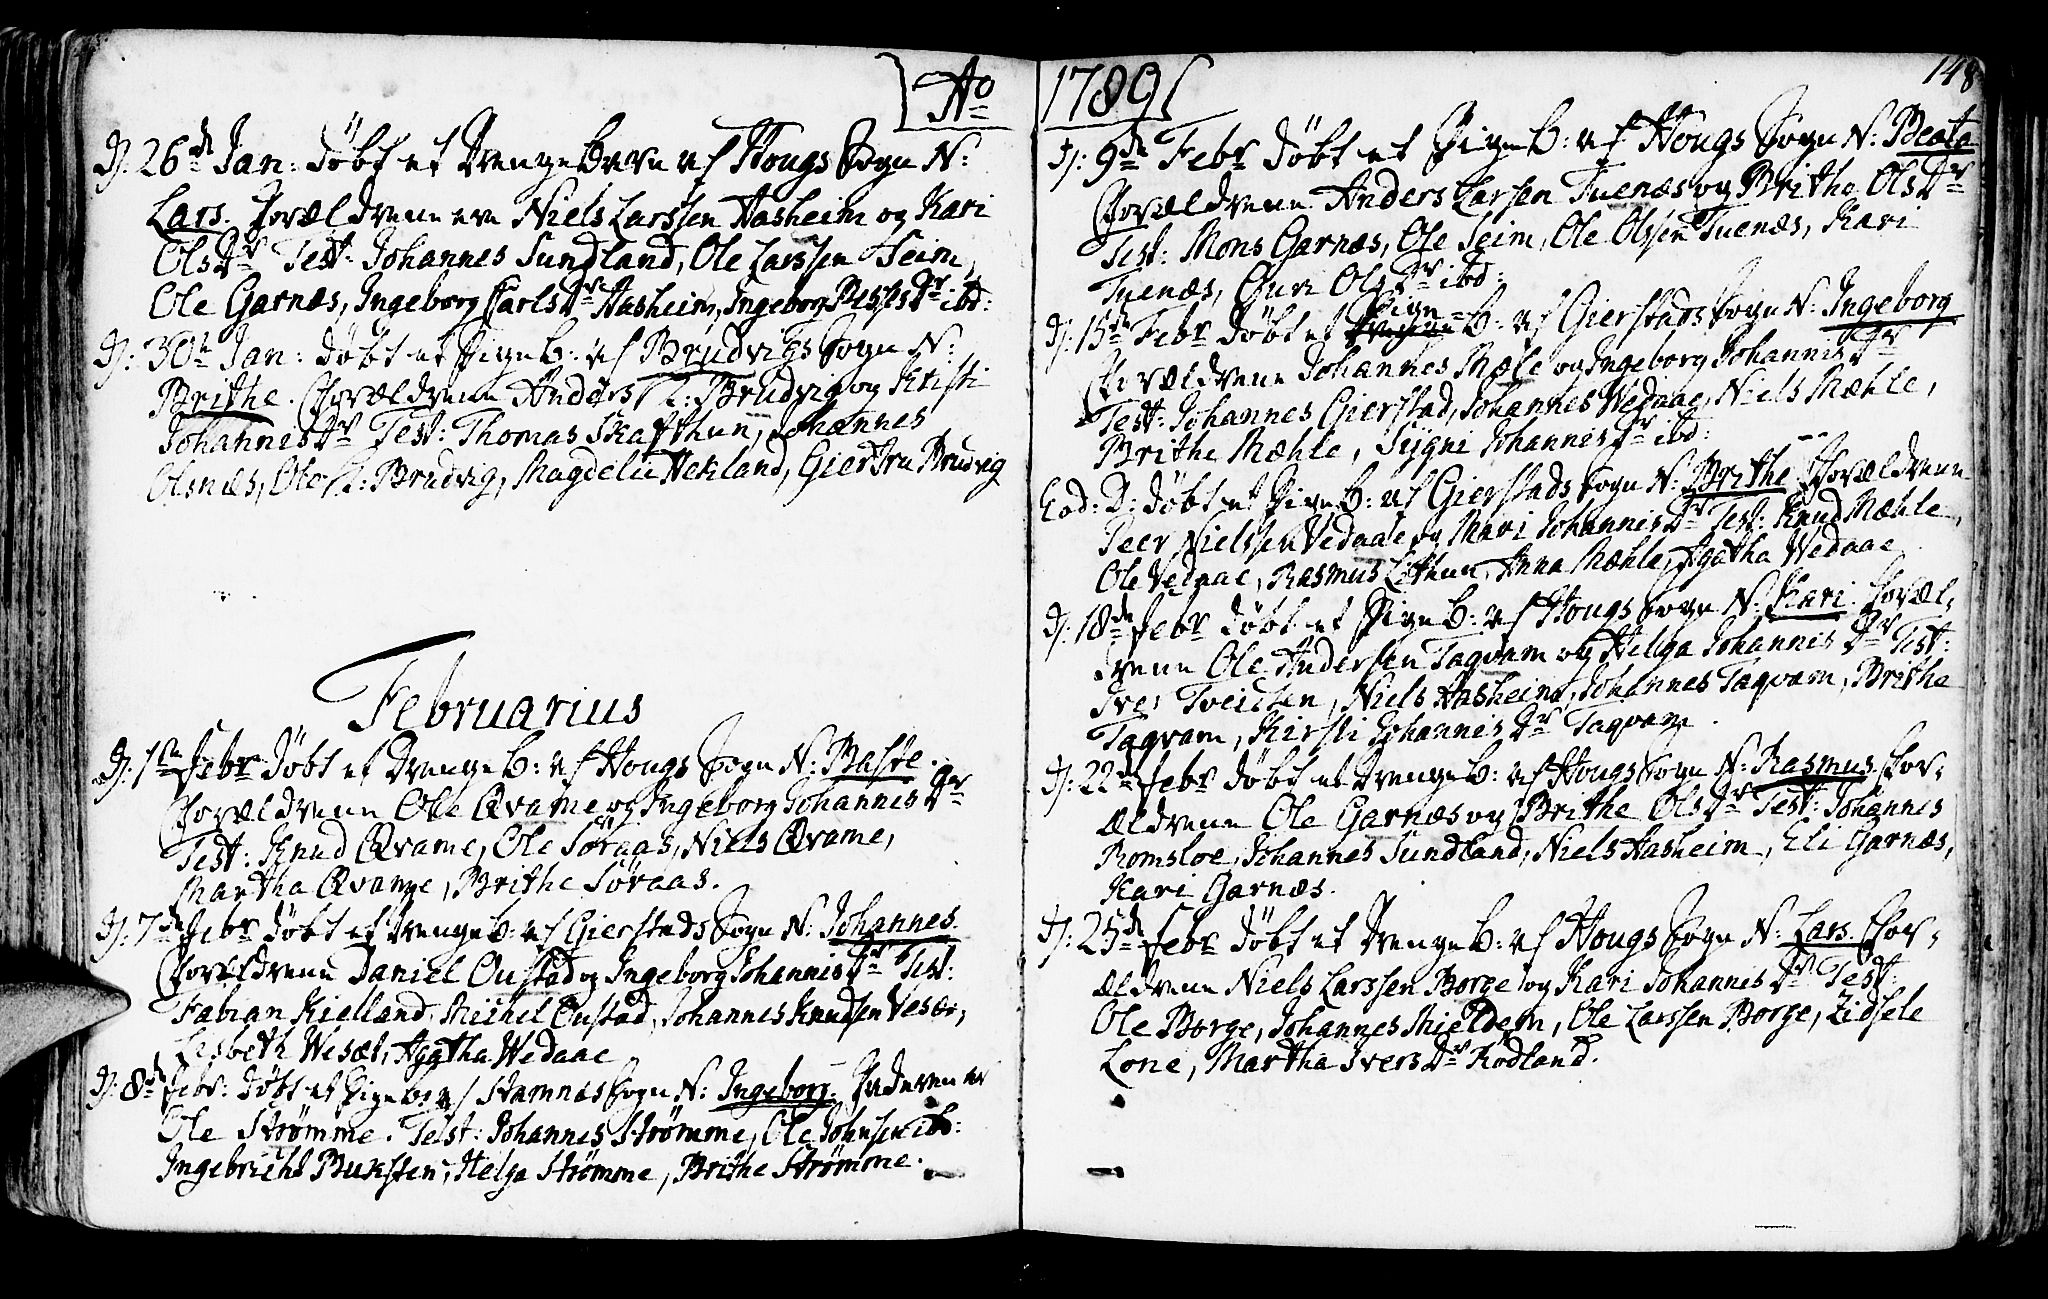 Ao
D: 26de Jan: døbt et Drenge Barn af Hougs Sogn N:
Lars. Forældrene ere Niels Larssen Aasheim og Kari
OlsDr Test: Johannes Sundland, Ole Larssen Seim,
Ole Garnæs, Ingeborg CarlsDr Aasheim, Ingeborg DrDr ibd:
D: 30te Jan: døbt et Pige B: af Brudvigs Sogn N:
Brithe. Forældrene Anders L: Brudvig og Kristi
JohannisDr Test: Thomas Skafthun, Johannes
Olsnæs, Ole L: Brudvig, Magdeli Hekland, Giertru Brudvig
Februarius
D: 1ste Febr døbt et Drenge B: af Hougs Sogn N: Baste.
Forældrene Ole Qvame og Ingeborg JohannesDr
Test: Knud Qvame, Ole Søraas, Niels Qvame,
Martha Qvame, Brithe Søraas.
D: 7de Febr døbt et Drenge B: af Gierstads Sogn N: Johannes.
Forældrene Daniel Oustad og Ingeborg JohannisDr Test:
Fabian Kielland, Michel Oustad, Johannes Knudsen Vesæt,
Lisbeth Wesæt, Agatha Wedaae
D: 8de Febr: døbt et Pige B: af Stamnæs Sogn N: Ingeborg. Faderen er
Ole Strømme. Test: Johannes Strømme, Ole Johnsen ib:
Ingebricht Buksten, Helga Strømme, Brithe Strømme.
1789
148
D: 9de Febr døbt et Pige B: af Hougs Sogn N: Beata
Forældrene Anders Larsen Tuenæs og Brithe OlsDr
Test: Mons Garnæs, Ole Seim, Ole Olssen Tuenæs, Kari
Tuenæs, Guri OlsDr ibd:
Pige=
D: 15de Febr døbt et Drenge B: af Gierstads Sogn N: Ingeborg
Forældrene Johannes Mæle og Ingeborg JohannisDr
Test: Johannes Gierstad, Johannes Wedaae, Niels Mæhle,
Brithe Mæhle, Sygni JohannisDr ibd:
Eod: D: døbt et Pige B: af Gierstads Sogn N: Brithe Forældrene
Peer Nielssen Vedaae og Mari JohannisDr Test: Knud Mæhle,
Ole Vedaae, Rasmus Lithun, Anna Mæhle, Agatha Wedaae
D: 18de Febr døbt et Pige B: af Hougs Sogn N: Kari. Foræl-
drene Ole Andersen Tagvam og Helga JohannisDr Test:
Iver Tveiten, Niels Aasheim, Johannes Tagvam, Brithe
Tagvam, Kirsti JohannisDr Tagvam.
D: 22de Febr døbt et Drenge B: af Hougs Sogn N: Rasmus. For-
ældrene Ole Garnæs og Brithe OlsDr Test: Johannes
Romsloe, Johannes Sundland, Niels Aasheim, Eli Garnæs,
Kari Garnæs.
D: 25de Febr døbt et Drenge B: af Hougs Sogn N: Lars. For-
ældrene Niels Larssen Borge og Kari JohannisDr Test:
Ole Borge, Johannes Mieldem, Ole Larssen Borge, Zidsele
Lone, Martha IversDr Rødland.